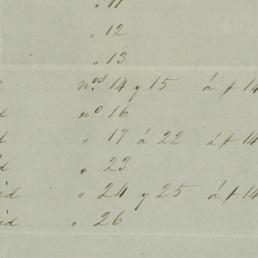 " 11
" 12
" 13
d nos. 14 y 15 á $ 14
d no 16
d " 17 á 22 á $ 14
d " 23
id " 24 y 25 á $ 14
id " 26